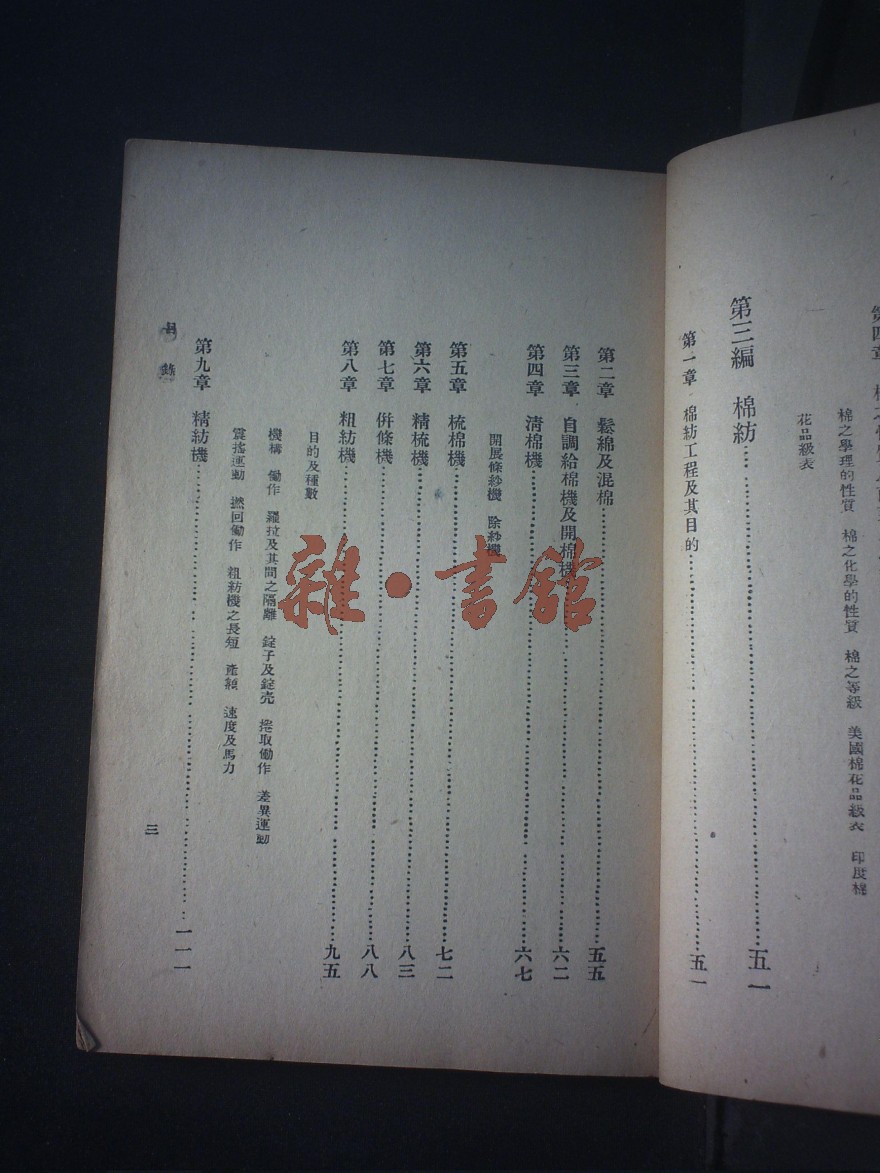 棉之學理的性質　棉之化學的性質　棉之等級　美國棉花品級表　印度棉
花品級表
第三編　棉紡……五一
第一章　棉紡工程及其目的……五一
第二章　鬆綿及混棉……五五
第三章　自調給棉機及開棉機……六二
第四章　淸棉機……六七
開展條紗機　除紗機
第五章　梳棉機……七二
第六章　精梳機……八三
第七章　併條機……八八
第八章　粗紡機……九五
目的及種數
機構　働作　羅拉及其間之隔離　錠子及錠壳　捲取働作　差異運動
震搖運動　撚回働作　粗紡機之長短　產額　速度及馬力
第九章　精紡機……一一一
目錄
三
雜·書館